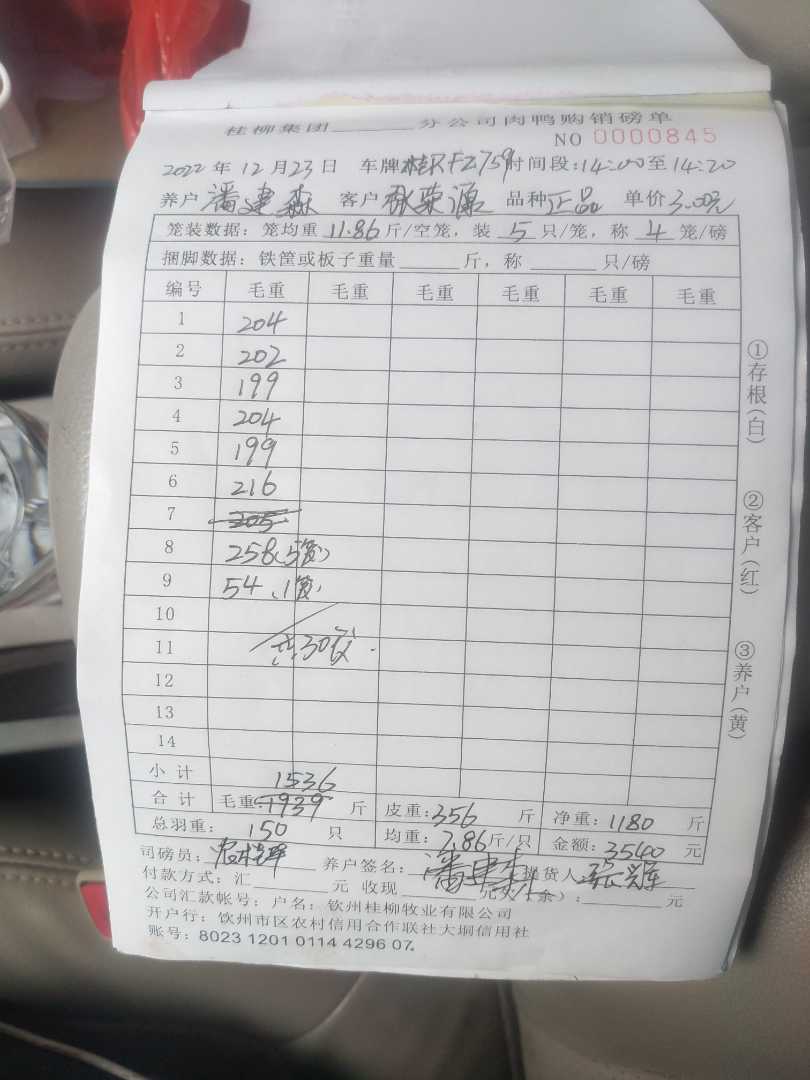 桂柳集团______分公司肉鸭购销磅单
NO 0000845
2022年12月23日 车牌桂RFZ759时间段:14:00至14:20
养户潘建森 客户张荣源 品种正品 单价3.00元
笼装数据:笼均重 11.86 斤/空笼,装 5 只/笼,称 4 笼/磅
捆脚数据:铁筐或板子重量______斤,称______只/磅
编号 毛重 毛重 毛重 毛重 毛重 毛重
1 204
2 202
3 199
4 204
5 199
6 216
7 205
8 258(5笼)
9 54(1笼)
10
11 共30笼.
12
13
14
小计 1536
合计 毛重:1939 斤 皮重:356 斤 净重:1180 斤
总羽重:150 只 均重:7.86斤/只 金额:3540 元
司磅员: 养户签名:潘建森 提货人:张兴军
付款方式:汇______元 收现______元欠(余):______元
公司汇款帐号:户名:钦州桂柳牧业有限公司
开户行:钦州市区农村信用合作联社大垌信用社
账号:8023 1201 0114 4296 07.
①存根(白)
②客户(红)
③养户(黄)